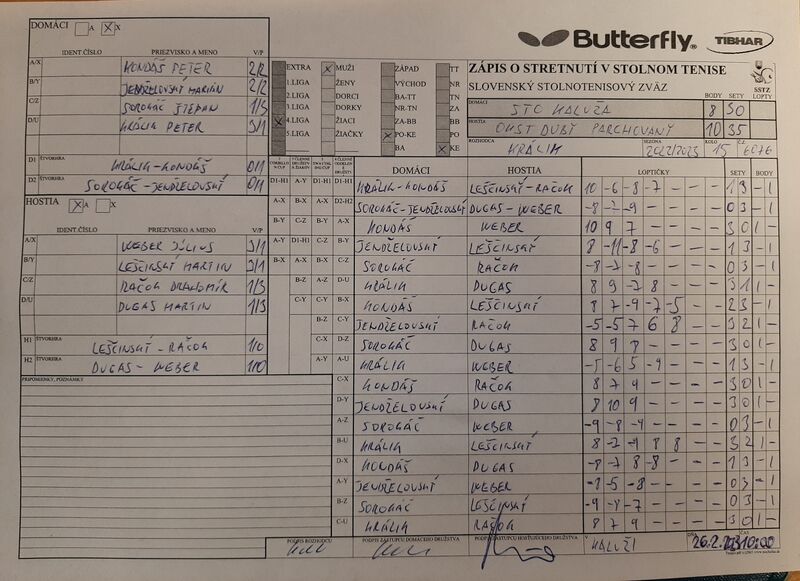 DOMÁCI A X X
IDENT.ČÍSLO PRIEZVISKO A MENO V/P
A/X KONDÁŠ PETER 2/2
B/Y JENDŽELOVSKÝ MARIÁN 2/2
C/Z SOROKÁČ ŠTEFAN 1/3
D/U KRÁLIK PETER 3/1
D1 ŠTVORHRA KRÁLIK-KONDÁŠ 0/1
D2 ŠTVORHRA SOROKÁČ-JENDŽELOVSKÝ 0/1
HOSTIA X A X
IDENT.ČÍSLO PRIEZVISKO A MENO V/P
A/X WEBER JÚLIUS 3/1
B/Y LEŠČINSKÝ MARTIN 3/1
C/Z RAČOK DRAHOMÍR 1/3
D/U DUGAS MARTIN 1/3
H1 ŠTVORHRA LEŠČINSKÝ - RAČOK 1/0
H2 ŠTVORHRA DUGAS - WEBER 1/0
PRIPOMIENKY, POZNÁMKY
EXTRA X MUŽI ZÁPAD TT
1.LIGA ŽENY VÝCHOD NR
2.LIGA DORCI BA-TT TN
3.LIGA DORKY NR-TN ZA
X 4.LIGA ŽIACI ZA-BB BB
5.LIGA ŽIAČKY X PO-KE PO
BA X KE
Butterfly TIBHAR
ZÁPIS O STRETNUTÍ V STOLNOM TENISE
SLOVENSKÝ STOLNOTENISOVÝ ZVÄZ
SSTZ
BODY SETY LOPTY
DOMÁCI STO KALUŽA 8 30
HOSTIA OKST DUBÝ PARCHOVANY 10 35
ROZHODCA KRÁLIK SEZÓNA 2022/2023 KOLO 15 6076
DOMÁCI HOSTIA LOPTIČKY SETY BODY
D1-H1 A-Y D1-H1 D1-H1 KRÁLIK-KONDÁŠ LEŠČINSKÝ-RAČOK 10 -6 -8 -7 - - - 1 3 - 1
A-X B-X A-X D2-H2 SOROKÁČ-JENDŽELOVSKÝ DUGAS-WEBER -8 -2 -9 - - - - 0 3 - 1
B-Y C-Z B-Y A-X KONDÁŠ WEBER 10 9 7 - - - - 3 0 1 -
A-Y D1-H1 C-Z B-Y JENDŽELOVSKÝ LEŠČINSKÝ 8 -11 -8 -6 - - - 1 3 - 1
B-X A-X B-X C-Z SOROKÁČ RAČOK -8 -7 -8 - - - - 0 3 - 1
B-Z A-Z D-U KRÁLIK DUGAS 8 9 -7 8 - - - 3 1 1 -
C-Y C-Y B-X KONDÁŠ LEŠČINSKÝ 8 7 -9 -7 -5 - - 2 3 - 1
B-Z C-Y JENDŽELOVSKÝ RAČOK -5 -5 7 6 8 - - 3 2 1 -
C-X D-Z SOROKÁČ DUGAS 8 9 8 - - - - 3 0 1 -
A-Y A-U KRÁLIK WEBER -5 -6 5 -9 - - - 1 3 - 1
C-X KONDÁŠ RAČOK 8 7 9 - - - - 3 0 1 -
D-Y JENDŽELOVSKÝ DUGAS 8 10 9 - - - - 3 0 1 -
A-Z SOROKÁČ WEBER -9 -8 -4 - - - - 0 3 - 1
B-U KRÁLIK LEŠČINSKÝ 8 -7 -9 8 8 - - 3 2 1 -
D-X KONDÁŠ DUGAS -8 -7 8 -8 - - - 1 3 - 1
A-Y JENDŽELOVSKÝ WEBER -7 -5 -8 - - - - 0 3 - 1
B-Z SOROKÁČ LEŠČINSKÝ -9 -8 -7 - - - - 0 3 - 1
C-U KRÁLIK RAČOK 8 7 9 - - - - 3 0 1 -
PODPIS ROZHODCU PODPIS ZÁSTUPCU DOMÁCEHO DRUŽSTVA PODPIS ZÁSTUPCU HOSŤUJÚCEHO DRUŽSTVA V KALUŽI 26.2.23 10:00